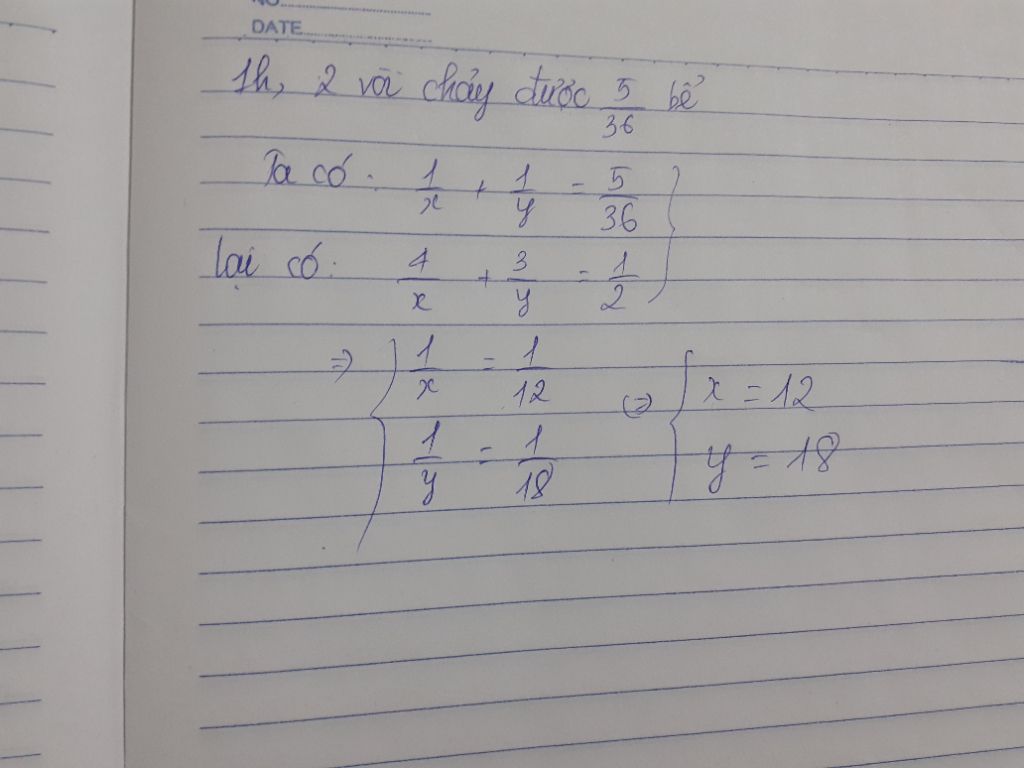 NO.
DATE
1h, 2 vòi chảy được 5/36 bể
Ta có: 1/x + 1/y = 5/36 }
lại có: 4/x + 3/y = 1/2
=> { 1/x = 1/12 <=> { x = 12
1/y = 1/18 y = 18